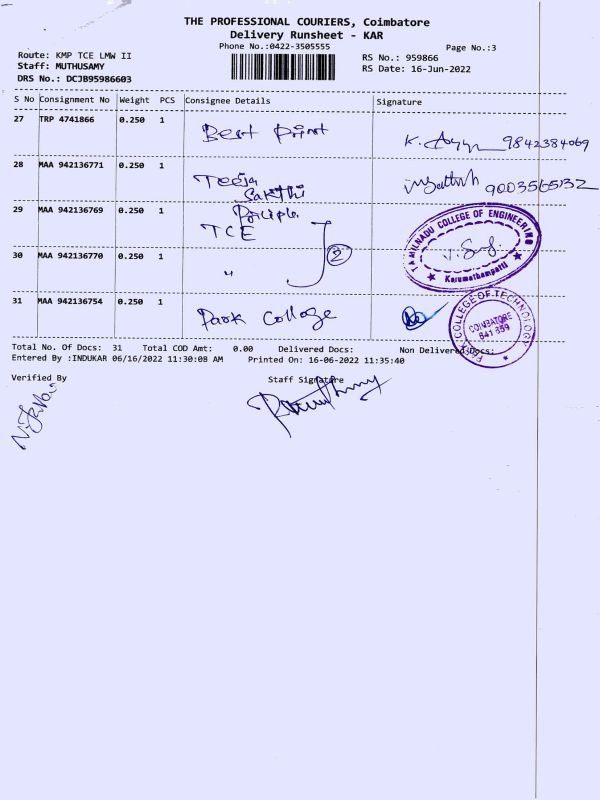 THE PROFESSIONAL COURIERS, Coimbatore
Delivery Runsheet - KAR
Phone No.:0422-3505555
Page No.:3
Route: KMP TCE LMW II
Staff: MUTHUSAMY
DRS No.: DCJB95986603
RS No.: 959866
RS Date: 16-Jun-2022
S No Consignment No Weight PCS Consignee Details Signature
27 TRP 4741866 0.250 1 Best print K. 9842384069
28 MAA 942136771 0.250 1 Teeja Sakthi 9003565132
29 MAA 942136769 0.250 1 TCE
30 MAA 942136770 0.250 1 " 2
TAMILNADU COLLEGE OF ENGINEERING
Karumathampatti
31 MAA 942136754 0.250 1 Park College
PARK COLLEGE OF TECHNOLOGY
COIMBATORE
641 659
Total No. Of Docs: 31 Total COD Amt: 0.00 Delivered Docs: Non Delivered Docs:
Entered By :INDUKAR 06/16/2022 11:30:08 AM Printed On: 16-06-2022 11:35:40
Verified By
Staff Signature